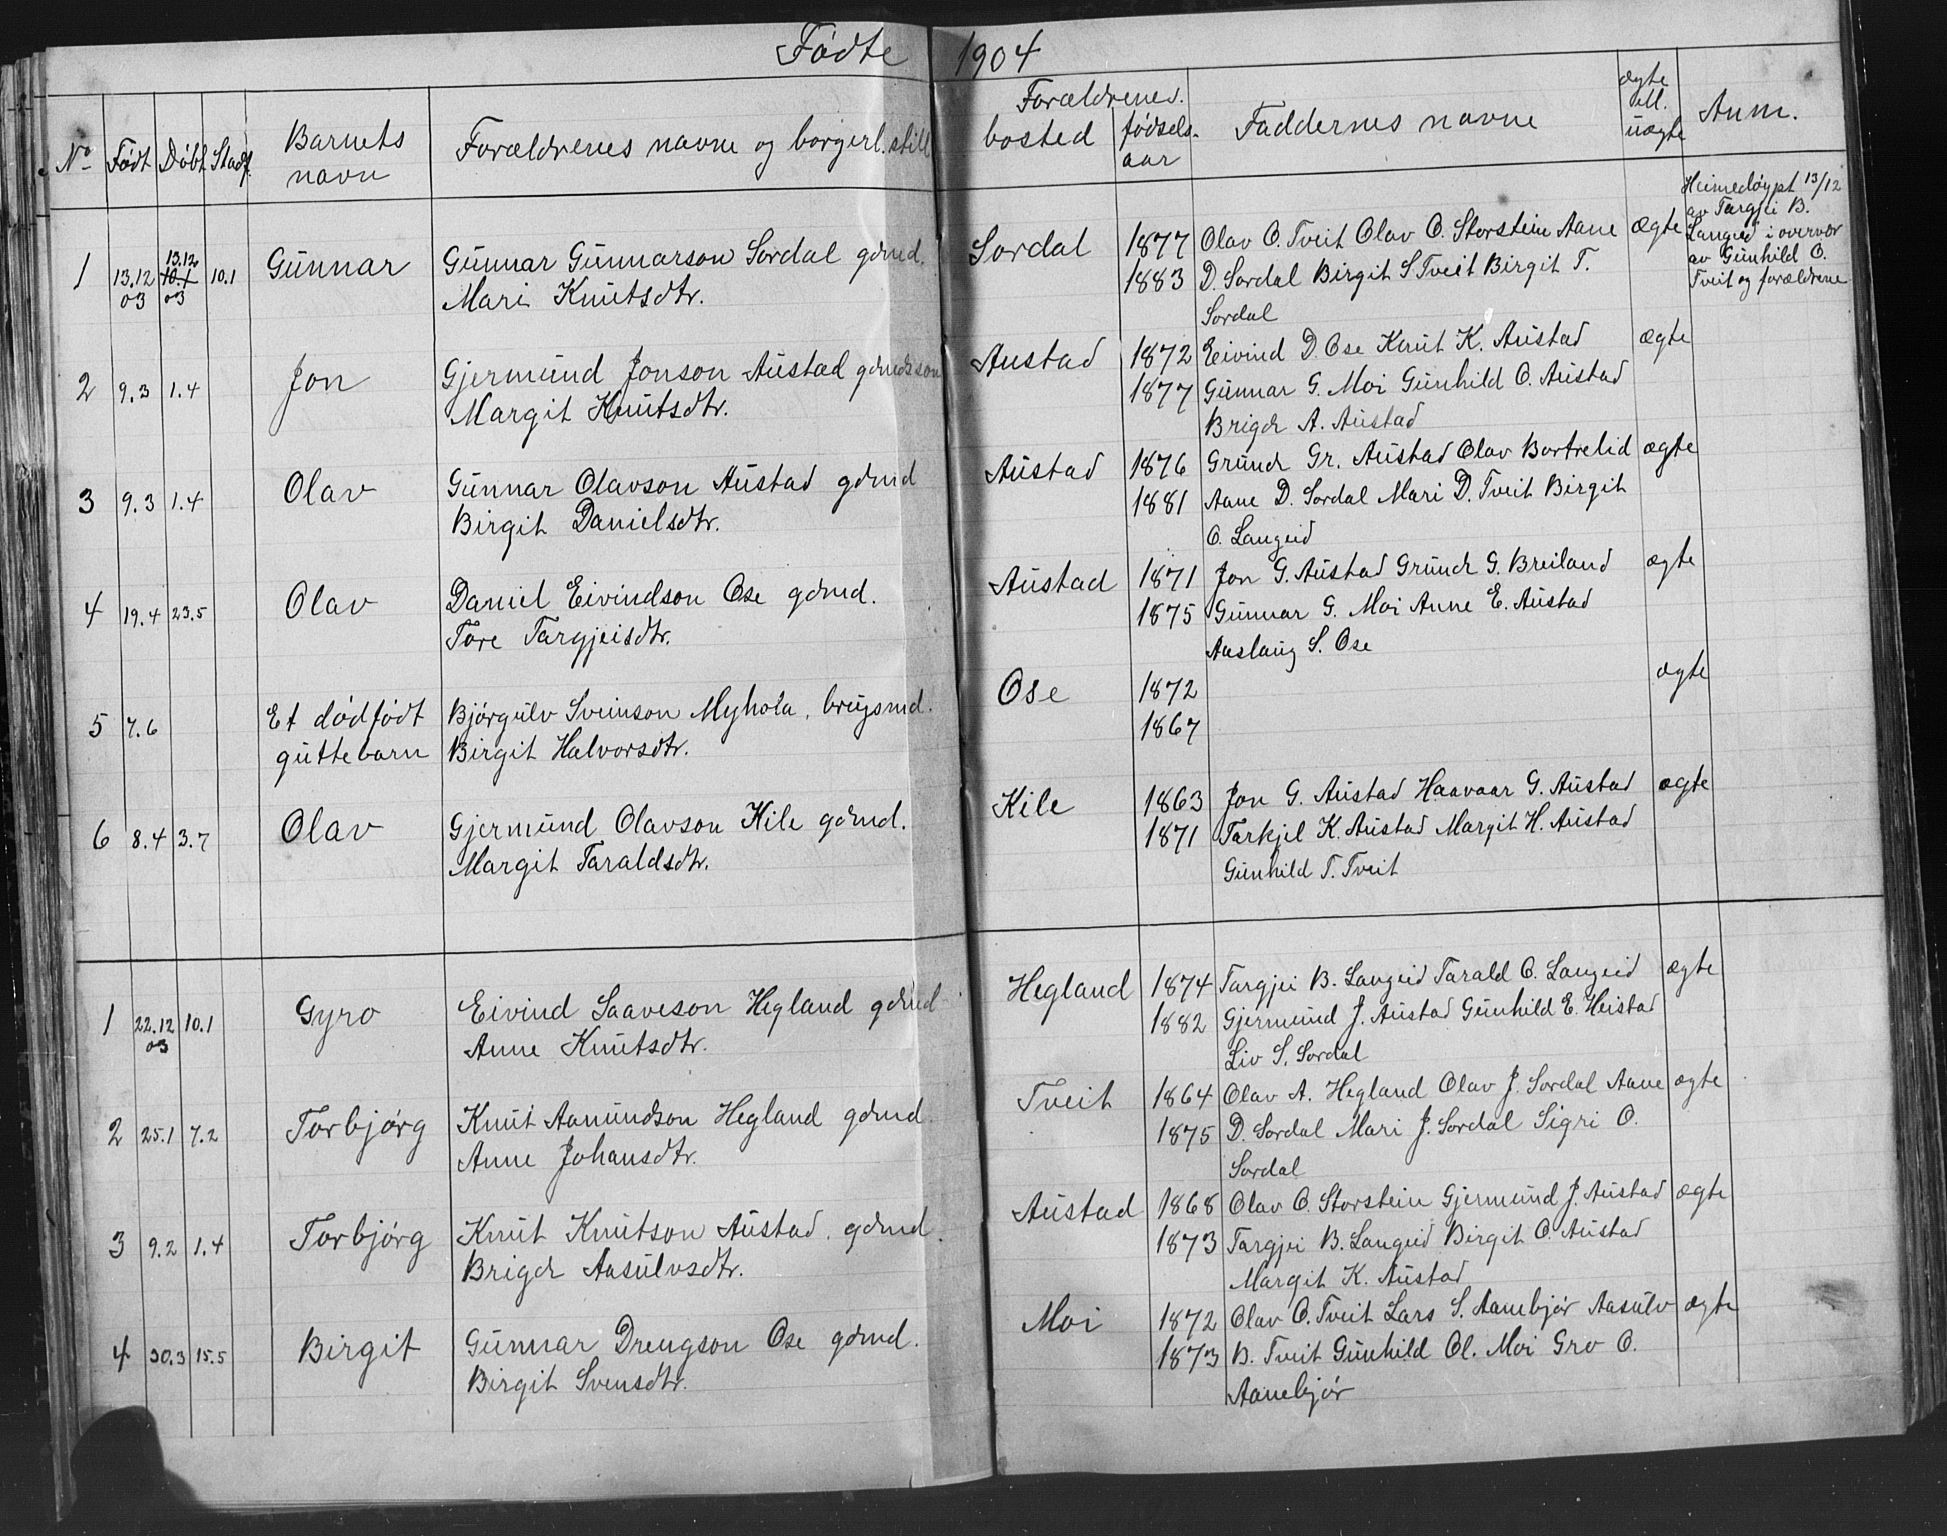 Fødte 1904
No Født Døbt Stadf. Barnets navn Forældrenes navne og borgerl. still Forældrenes. bosted fødsels-aar Faddernes navne ægte ell. uægte Anm.
1 13.12 03 13.12 10.1 03 10.1 Gunnar Gunnar Gunnarson Sordal gdmd. Sordal 1877 Olav O. Tveit Olav O. Storstein Aane ægte Heimedøypt 13/12
Mari Knutsdtr. 1883 D. Sordal Birgit S Tveit Birgit T. av Targjei B.
Sordal Langeid i overvær
av Gunhild O.
Tveit og forældrene
2 9.3 1.4 Jon Gjermund Jonson Austad gdmdsson Austad 1872 Eivind D. Ose Knut K. Austad ægte
Margit Knutsdtr. 1877 Gunnar G. Moi Gunhild O. Austad
Brigd A. Austad
3 9.3 1.4 Olav Gunnar Olavson Austad gdmd Austad 1876 Grund Gr. Austad Olav Bortrelid ægte
Birgit Danielsdtr. 1881 Aane D. Sordal Mari D. Tveit Birgit
O. Langeid
4 19.4 23.5 Olav Daniel Eivindson Ose gdmd. Austad 1871 Jon G. Austad Grund G. Breiland ægte
Tore Targjeisdtr. 1875 Gunnar G. Moi Anne E. Austad
Aaslaug S. Ose
5 7.6 Et dødfødt Bjørgulv Sveinson Myhola, brugsmd. Ose 1872 ægte
guttebarn Birgit Halvorsdtr. 1867
6 8.4 3.7 Olav Gjermund Olavson Kile gdmd. Kile 1863 Jon G. Austad Haavaar G. Austad ægte
Margit Taraldsdtr. 1871 Tarkjel K. Austad Margit H. Austad
Gunhild T. Tveit
1 22.12 03 10.1 Gyro Eivind Saaveson Hegland gdmd Hegland 1874 Targjei B. Langeid Tarald O. Langeid ægte
Anne Knutsdtr. 1882 Gjermund J. Austad Gunhild E. Heistad
Liv S. Sordal
2 25.1 7.2 Torbjørg Knut Aamundson Hegland gdmd. Tveit 1864 Olav A. Hegland Olav J. Sordal Aane ægte
Anne Johansdtr. 1875 D. Sordal Mari J. Sordal Sigri O.
Sordal
3 9.2 1.4 Torbjørg Knut Knutson Austad. gdmd. Austad 1868 Olav O. Storstein Gjermund J. Austad ægte
Brigd Aasulvsdtr. 1873 Targjei B. Langeid Birgit O. Austad
Margit K. Austad
4 30.3 15.5 Birgit Gunnar Drengson Ose gdmd. Moi 1872 Olav O. Tveit Lars S. Aanebjør Aasulv ægte
Birgit Svensdtr. 1873 B. Tveit Gunhild Ol. Moi Gro O.
Aanebjør